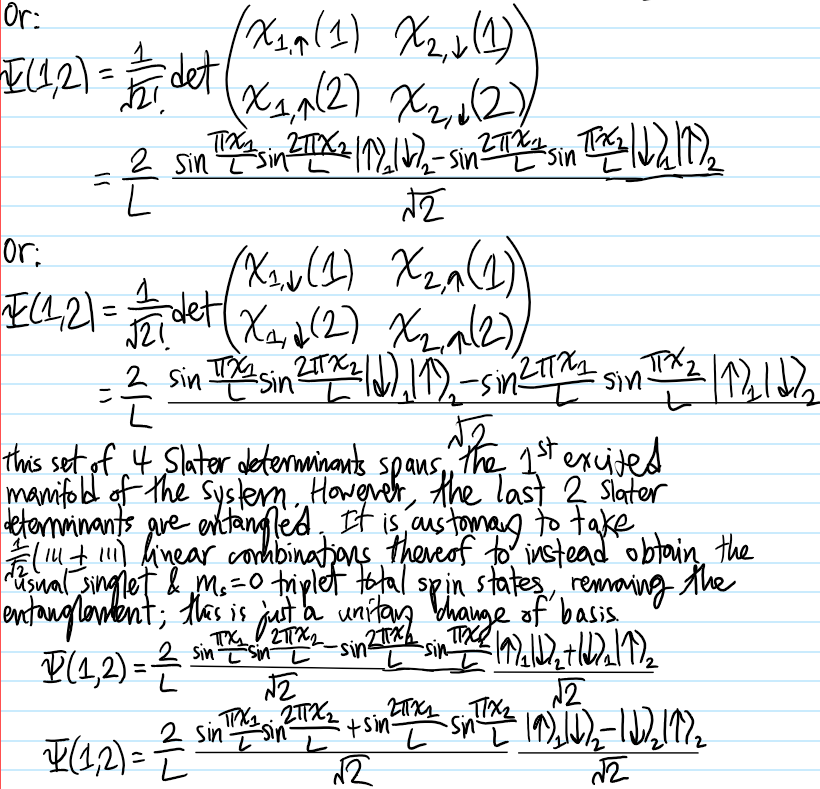 Or:
Ψ(1,2) = 1/√2! det ( χ₁,↑(1) χ₂,↓(1)
χ₁,↑(2) χ₂,↓(2) )
= 2/L (sin πx₁/L sin 2πx₂/L |↑⟩₁|↓⟩₂ - sin 2πx₁/L sin πx₂/L |↓⟩₁|↑⟩₂)/√2
Or:
Ψ(1,2) = 1/√2! det ( χ₁,↓(1) χ₂,↑(1)
χ₁,↓(2) χ₂,↑(2) )
= 2/L (sin πx₁/L sin 2πx₂/L |↓⟩₁|↑⟩₂ - sin 2πx₁/L sin πx₂/L |↑⟩₁|↓⟩₂)/√2
This set of 4 Slater determinants spans the 1st excited
manifold of the system. However, the last 2 Slater
determinants are entangled. It is customary to take
1/√2 (''' ± ''') linear combinations thereof to instead obtain the
usual singlet & mₛ=0 triplet total spin states, removing the
entanglement; this is just a unitary change of basis.
Ψ(1,2) = 2/L (sin πx₁/L sin 2πx₂/L - sin 2πx₁/L sin πx₂/L)/√2 (|↑⟩₁|↓⟩₂+|↓⟩₁|↑⟩₂)/√2
Ψ(1,2) = 2/L (sin πx₁/L sin 2πx₂/L + sin 2πx₁/L sin πx₂/L)/√2 (|↑⟩₁|↓⟩₂-|↓⟩₂|↑⟩₂)/√2